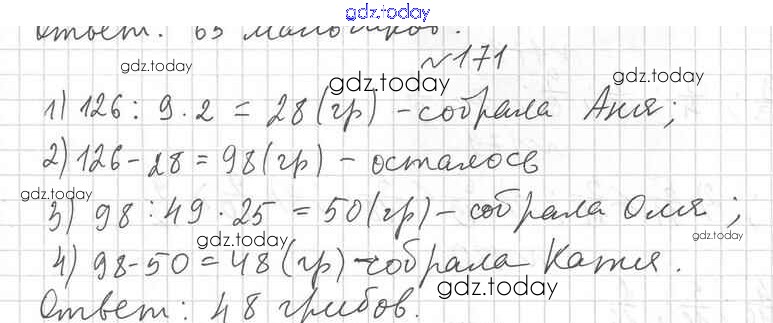 gdz.today
Ответ: 63
№171
gdz.today
gdz.today
gdz.today
1) 126 : 9 · 2 = 28 (гр) - собрала Аня;
2) 126 - 28 = 98 (гр) - осталось
gdz.today
3) 98 : 49 · 25 = 50 (гр) - собрала Оля;
gdz.today
gdz.today
4) 98 - 50 = 48 (гр) - собрала Катя.
gdz.today
Ответ: 48 грибов.